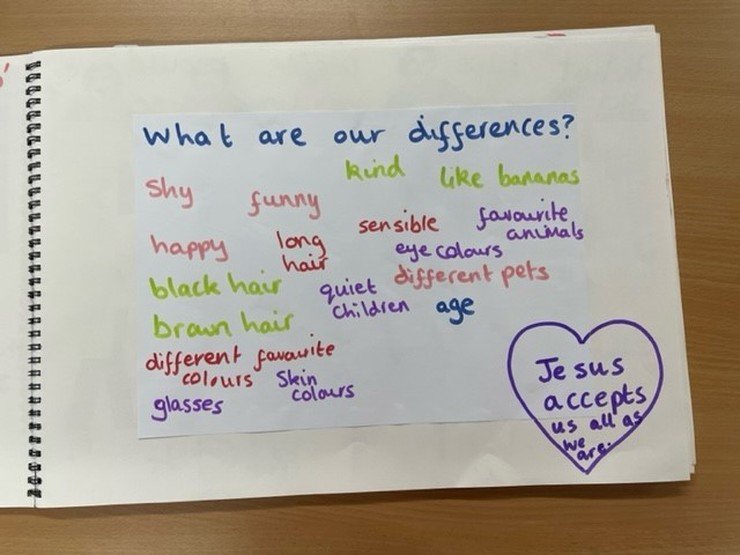 What are our differences?
kind
like bananas
shy
funny
sensible
favourite
animals
happy
long
hair
eye colours
black hair
quiet
children
different pets
age
brown hair
different favourite
colours
skin
colours
glasses
Jesus
accepts
us all as
we
are.